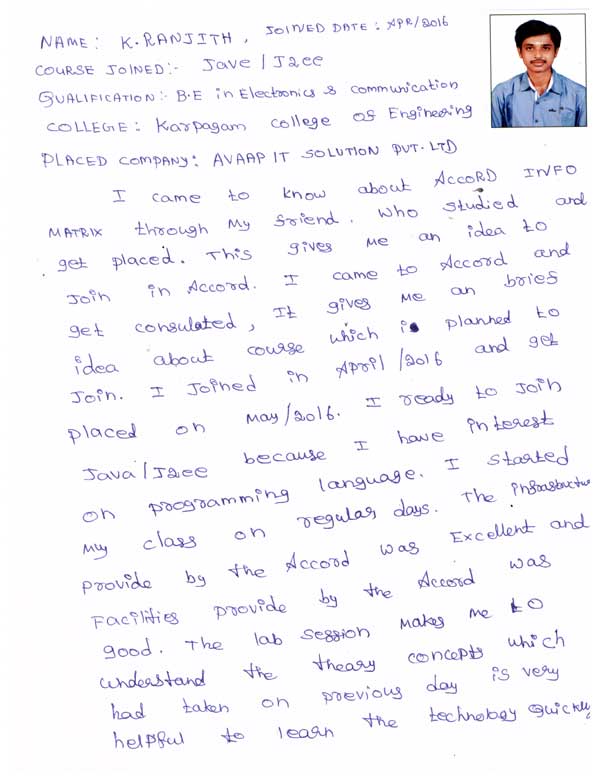 NAME: K.RANJITH, JOINED DATE: APR/2016
COURSE JOINED:- Jave/J2ee
QUALIFICATION:- B.E in Electronics & communication
COLLEGE: Karpagam college of Engineering
PLACED COMPANY: AVAAP IT SOLUTION PVT.LTD
I came to know about ACCORD INFO
MATRIX through My friend. Who studied and
get placed. This gives Me an idea to
Join in Accord. I came to Accord and
get consulated, It gives Me an brief
idea about course which is planned to
Join. I Joined in April/2016 and get
placed on May/2016. I ready to Join
Java/J2ee because I have interest
on programming language. I started
My class on regular days. The infrastructure
provide by the Accord was Excellent and
Facilities provide by the Accord was
good. The lab session makes me to
understand the theary concepts which
had taken on previous day is very
helpful to learn the technology Quickly